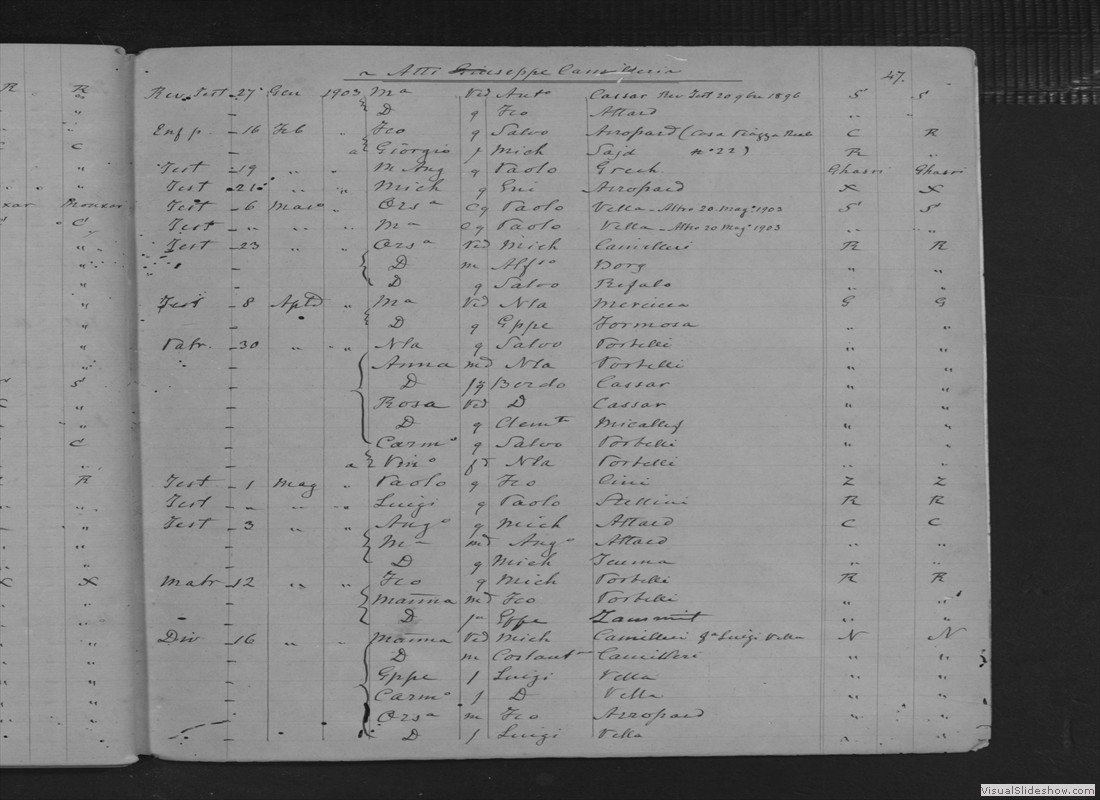 Atti Giuseppe Camilleri 47.
Rev. Test - 27 Gen 1903 Ma Ved Anto Cassar Rev. Test 20 9bre 1896 S S
D g Fco Attard " "
Enf p. - 16 Feb " Fco g Salvo Azzopard (Casa Piazza Reale C R
a Giorgio f Mich Sajd No 22) R "
Test - 19 " " M Ang g Paolo Grech Ghasri Ghasri
Test - 21 " " Mich g Gni Azzopard X X
Test - 6 Marzo " Orsa Cg Paolo Vella - Altro 20 Mago 1903 S S
Test - " " " Ma Cg Paolo Vella - Altro 20 Mago 1903 " "
Test - 23 " " Orsa Ved Mich Camilleri R R
D m Alfso Borg " "
D g Salvo Refalo " "
Test - 8 Aple " Ma Ved Nla Mercieca G G
D g Gppe Formosa " "
- 30 " " Nla g Salvo Portelli " "
Anna md Nla Portelli " "
D fg Berdo Cassar " "
Rosa Ved D Cassar " "
D g Clemte Micallef " "
Carmo g Salvo Portelli " "
a Vinо fd Nla Portelli " "
Test - 1 Mag " Paolo g Fco Cini Z Z
Test - " " " Luigi g Paolo Stellini R R
Test - 3 " " Ango g Mich Attard C C
Ma md Ango Attard " "
D g Mich Teuma " "
Matr - 12 " " Fco g Mich Portelli R R
Marina md Fco Portelli " "
D Gppe Zammit " "
Div - 16 " " Marina Ved Mich Camilleri Luigi Vella N N
D m Costant Camilleri " "
Gppe f Luigi Vella " "
Carmo f D Vella " "
Orsa m Fco Azzopard " "
D f Luigi Vella " "
VisualSlideshow.com